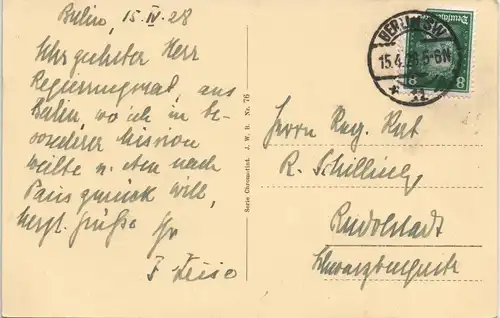 Berlin, 15.IV.28
Sehr geehrter Herr
Regierungsrat, aus
Berlin, wo ich in be-
sonderer Mission
weilte u. eben nach
Paris zurück will,
herzl. Grüße Ihr
F.
Serie Chromotist. J. W. B. Nr. 76
BERLIN SW
15.4.28.5-6N
* 12
8 8
Herrn Reg. Rat
R. Schilling,
Rudolstadt
Schwarzburgerstr